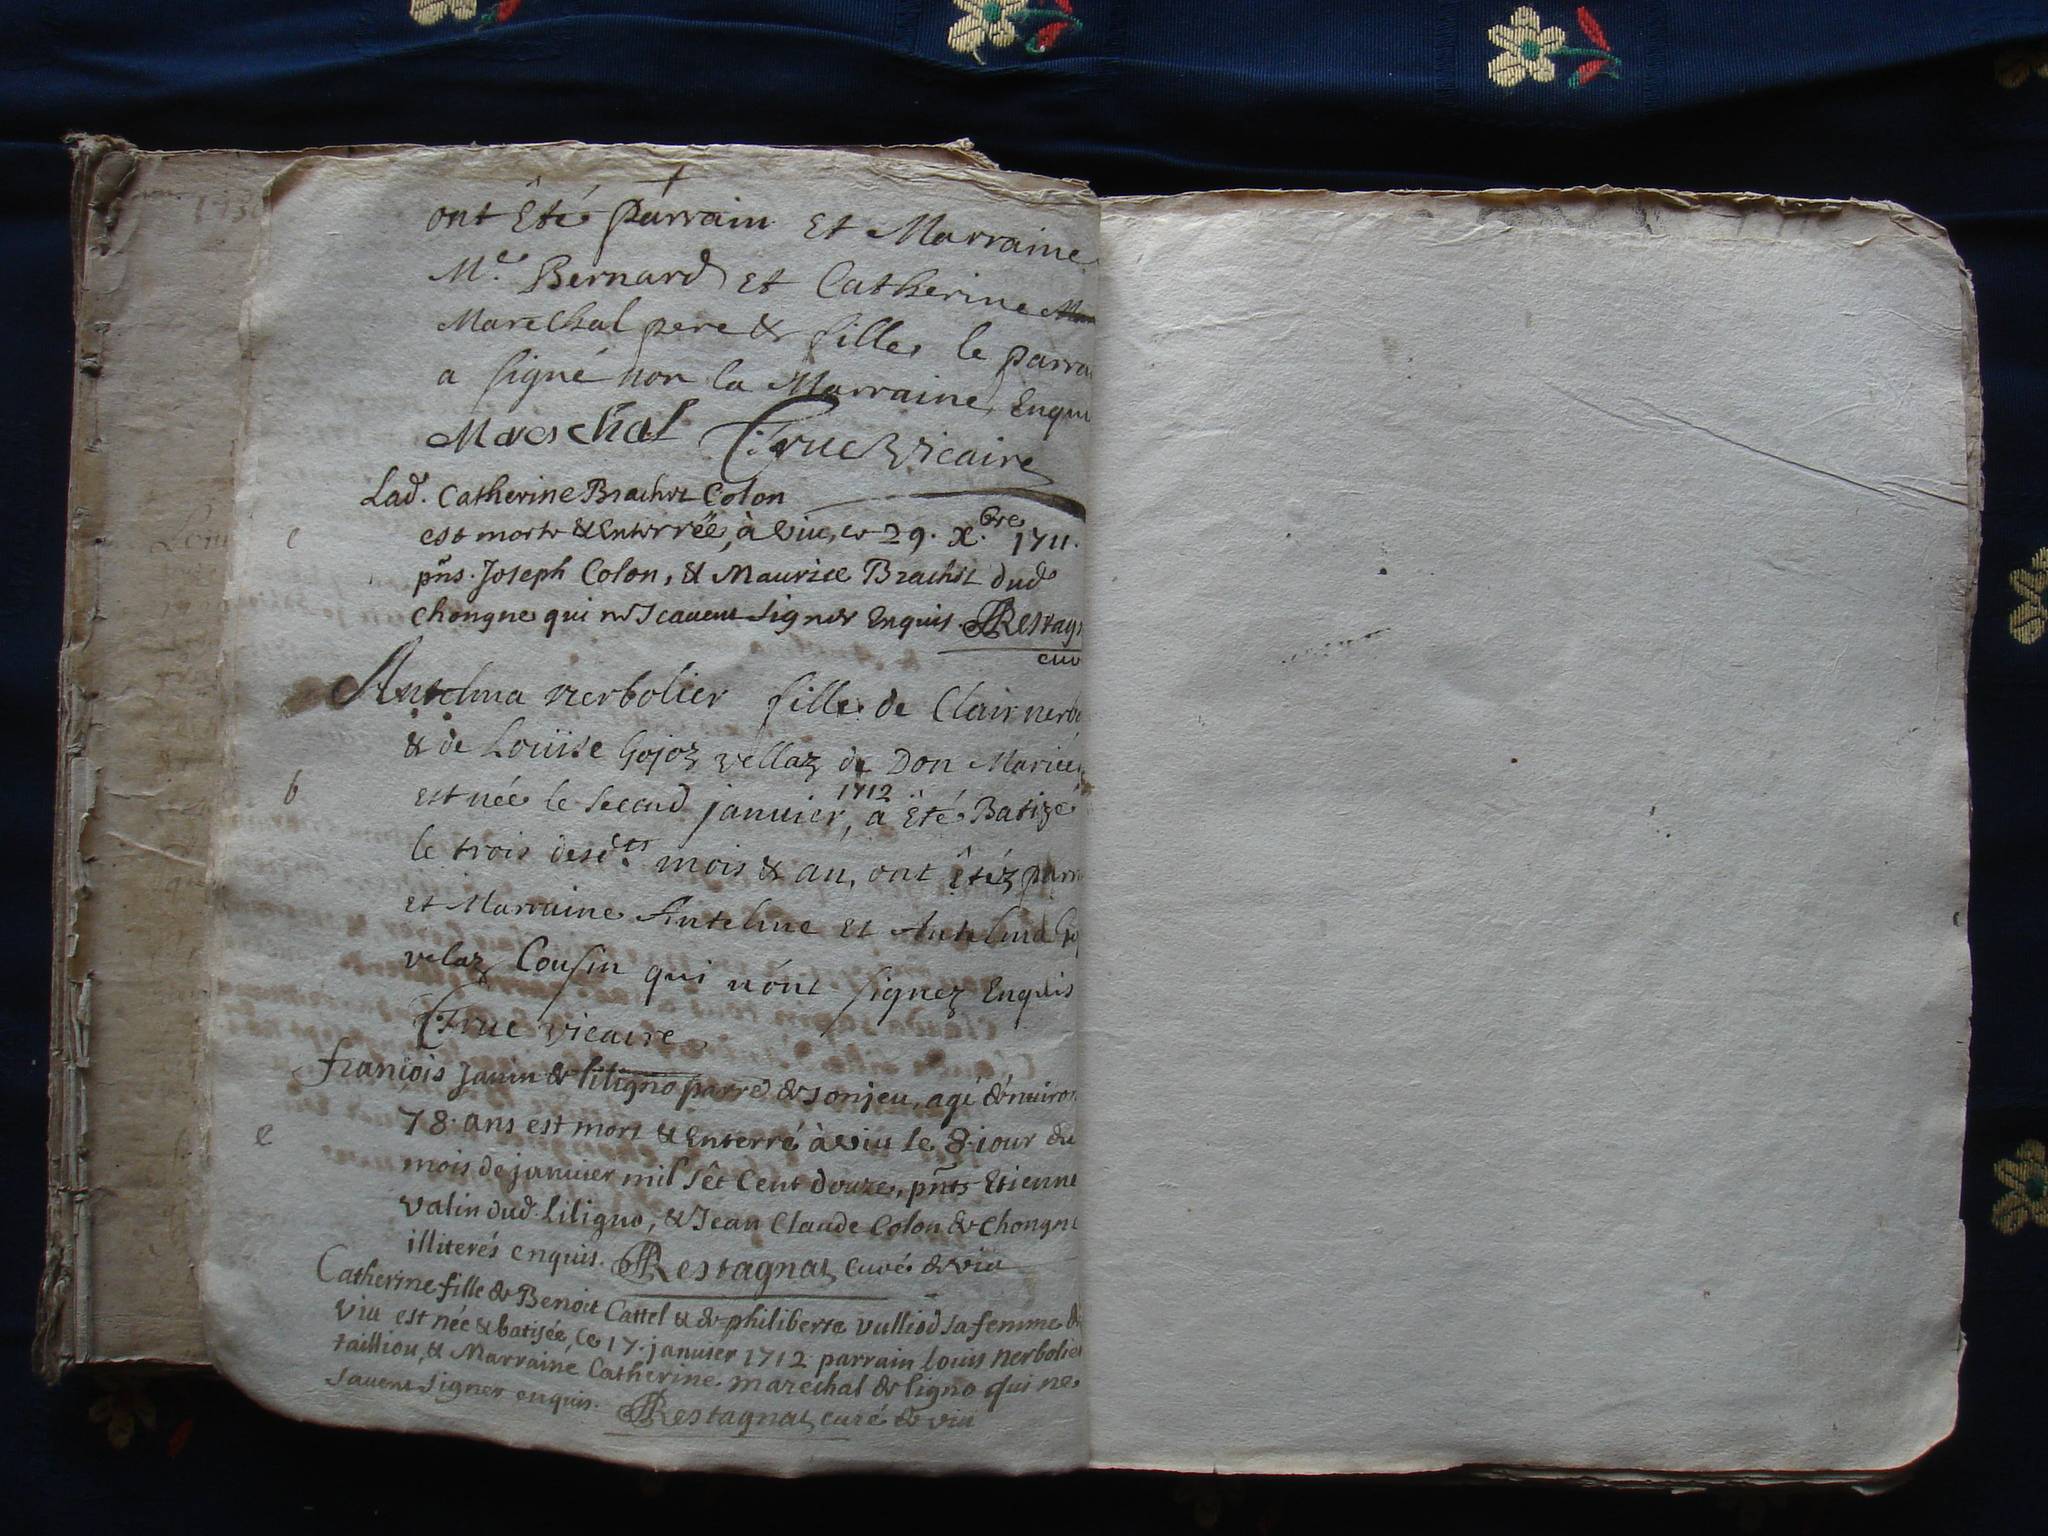 ont Êté parrain Et Marraine
Mr. Bernard Et Catherine
Marechal pere & fille, le parra
a signé non la Marraine Enqui
Mareschal Truc vicaire
Lad. Catherine Brachet Colon
est morte & Enterrée, à viu, le 29. X.bre 1711.
pñs. Joseph Colon, & Maurice Brachet dud.
chongne qui ne scavent signer Enquis. Restagn
cur
Antelma nerbolier fille de Clair nerbo
& de Louïse Gojoz vellaz de Don Mariée
1712
b est née le second janvier, a Êté Batizé
le trois desd.ts mois & an, ont êtéz parr
et Marraine Antelme Et Antelma Go
velaz Cousin qui n'ont signez Enquis
Truc vicaire
francois Janin de liligno parr. de sonjeu, agé d'environ
e 78. ans est mort & Enterré à viu le 8. jour du
mois de janvier mil sêt Cent douze, pñts Etienne
valin dud. liligno, & Jean Claude Colon de Chongne
illiterés enquis. Restagnat curé de viu
Catherine fille de Benoit Cattel & de philiberte vulliod sa femme de
viu est née & batisée, le 17. janvier 1712 parrain Louis nerbolier
tailliou, & Marraine Catherine marechal de ligno qui ne
savent signer enquis. Restagnat curé de viu